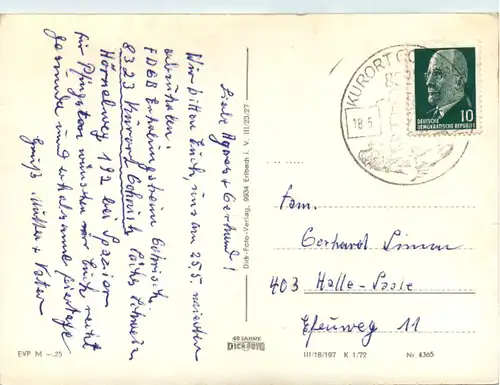 Liebe Agnes + Gerhard!
Wir bitten Euch, uns am 25.5.
FDGB Erholungsheim Gohrisch.
8323 Kurort Gohrisch
192 bei
für Pfingsten wünschen wir Euch recht
gesunde und erholsame Feiertage
Grüße, Mutter + Vater
Dick-Foto-Verlag, 9934 Erlbach i. V. III/23/27
KURORT GO
18.5
10
DEUTSCHE
DEMOKRATISCHE REPUBLIK
Fam.
Gerhard Simon
403 Halle-Saale
Efeuweg 11
40 JAHRE
DICK FOTO
EVP M —.25
III/18/197 K 1/72 Nr. 4365